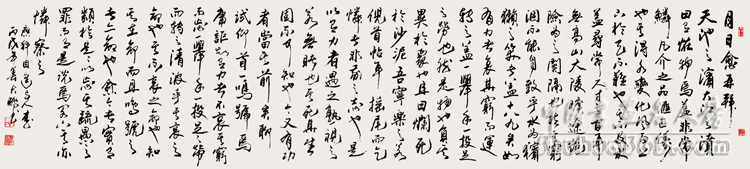 月日愈再拜
天池之濱大江之濆
曰有怪物焉蓋非常
鱗凡介之品匯匹儔
也其得水變化風雨上
下於天不難也其不及水
蓋尋常尺寸之間耳
無高山大陵曠途絕
險為之關隔也然其窮
涸不能自致乎水為獱
獺之笑者蓋十八九矣如
有力者哀其窮而運
轉之蓋一舉手一投足
之勞也然是物也負其
異於眾也且曰爛死
於沙泥吾寧樂之若
俯首帖耳搖尾而乞
憐者非我之志也是
以有力者遇之熟視之
若無睹也其死其生
固不可知也今又有有力
者當其前矣聊
試仰首一鳴號焉
庸詎知有力者不哀其窮
而忘一舉手一投足之勞
而轉之清波乎其哀之
命也其不哀之命也知
其在命而且鳴號之
者亦命也愈今者實有
類於是是以忘其疏愚之
罪而有是說焉閣下其亦
憐察之
應科目時與人書
丙戌年